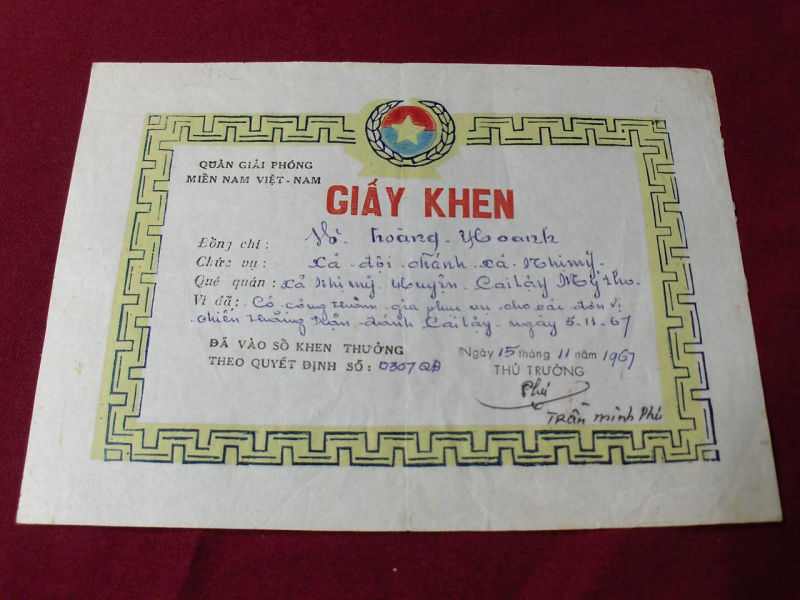 QUÂN GIẢI PHÓNG
MIỀN NAM VIỆT-NAM
GIẤY KHEN
Đồng chí: Võ Hoàng Hoanh
Chức vụ: Xã đội chánh xã Nhị mỹ.
Quê quán: xã Nhị mỹ Huyện Cai lậy Mỹ tho.
Vì đã: Có công tham gia phục vụ cho các đơn vị
chiến thắng trận đánh Cai lậy ngày 5.11.67
ĐÃ VÀO SỔ KHEN THƯỞNG
THEO QUYẾT ĐỊNH SỐ: 0307 QĐ
Ngày 15 tháng 11 năm 1967
THỦ TRƯỞNG
Phú
Trần minh Phú